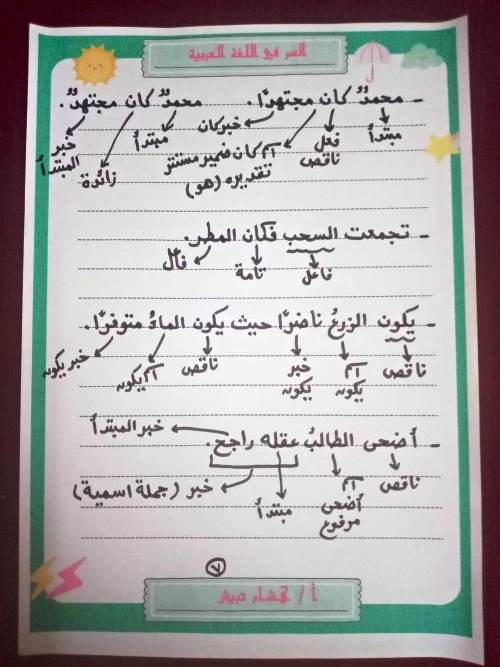 السر في اللغة العربية
- محمدٌ كان مجتهدًا. محمدٌ كان مجتهدٌ.
مبتدأ فعل ناقص اسم كان ضمير مستتر تقديره (هو) خبر كان مبتدأ زائدة خبر المبتدأ
- تجمعت السحب فكان المطر.
فاعل تامة فاعل
- يكون الزرعُ ناضرًا حيث يكون الماءُ متوفرًا.
ناقص اسم يكون خبر يكون ناقص اسم يكون خبر يكون
- أضحى الطالبُ عقله راجح.
خبر المبتدأ
ناقص اسم أضحى مرفوع مبتدأ خبر (جملة اسمية)
٧
أ / حبيش